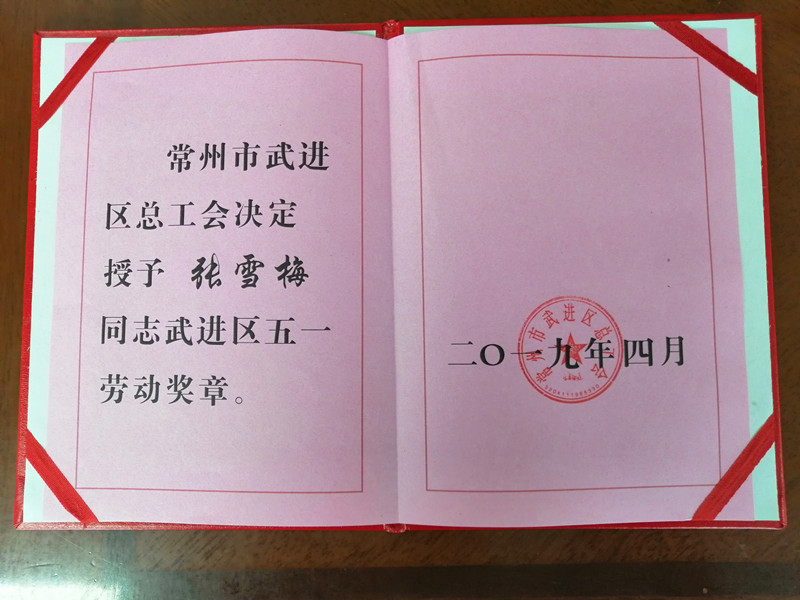 常州市武进
区总工会决定
授予 张雪梅
同志武进区五一
劳动奖章。
常州市武进区总工会
二〇一九年四月